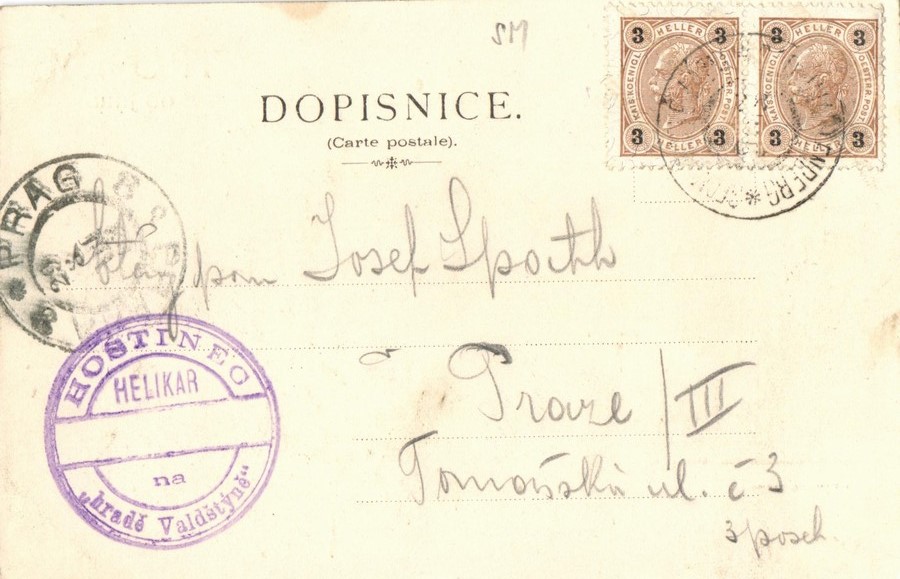 SM
DOPISNICE.
(Carte postale).
3 HELLER 3
KAIS. KOENIGL. OESTERR. POST
3 HELLER 3
3 HELLER 3
KAIS. KOENIGL. OESTERR. POST
3 HELLER 3
PRAG
pan Josef
v Praze / III
Tomášská ul. č 3
3 posch.
HOSTINEC
HELIKAR
na
„hradě Valdštýně“